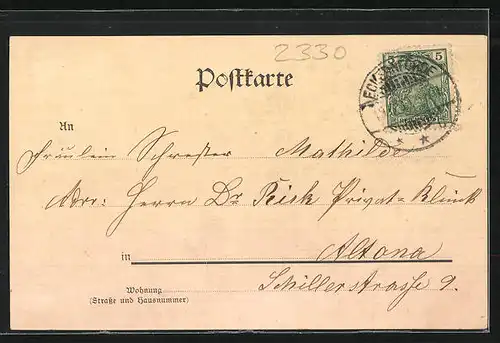 2330
Postkarte
5
An
Fräulein Schwester Mathilde
Adr: Herrn Dr Piek Privat-Klinik
in Altona
Schillerstrasse 9.
Wohnung
(Straße und Hausnummer)